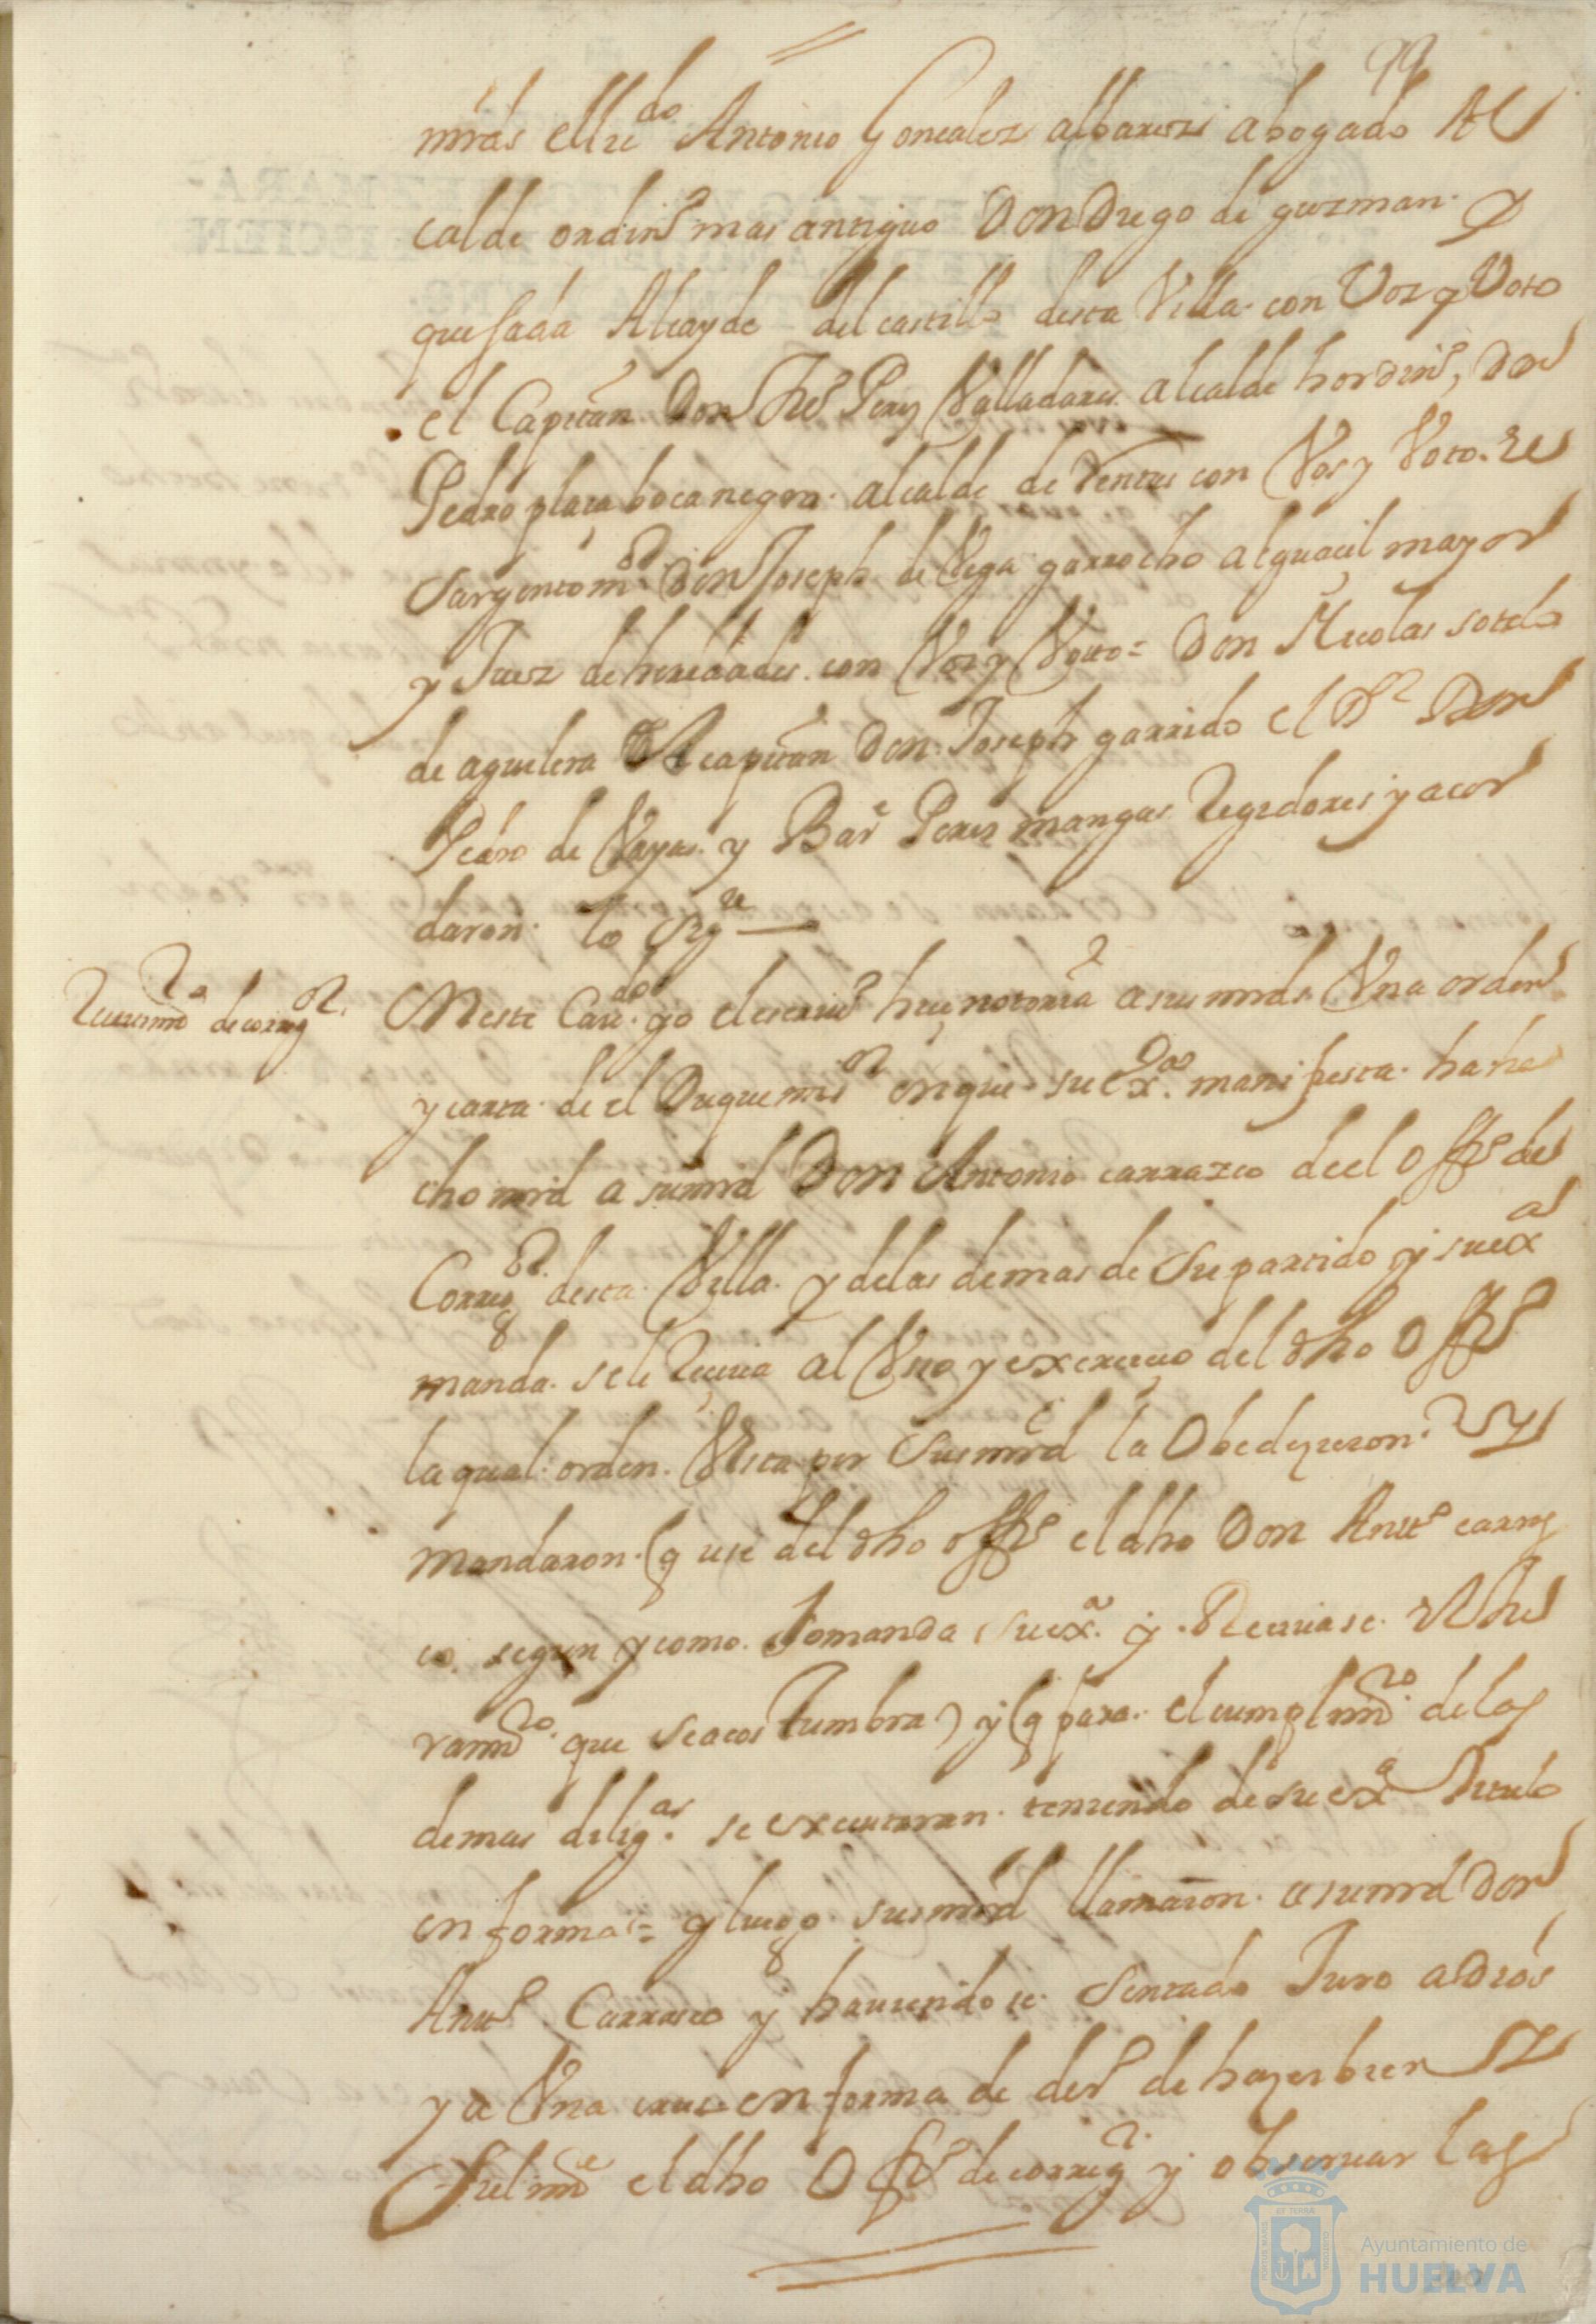 99
mrds el lido Antonio Gonçalez albarez abogado Al
calde ordinº mas antiguo Don Diego de guzman y
quesada Alcayde del castillo desta Villa con Voz y Voto
el Capitan Don Jhº Perez Valladares alcalde hordinº, Don
Pedro plaça bocanegra alcalde de Ventas con Vos y Voto. el
Sargento mor Don Joseph de Vega garrocho alguaçil mayor
y Juez de heredades con Voz y Voto = Don Nicolas sotelo
de aguilera el capitan Don Joseph garrido el Dr Don
Pedro de Vayas y Bare Perez mangas Regidores y acor
daron lo sigte
Reciuimto de corregor
En este Caudo yo el escriuº hiçe notoria a sus mrds Vna orden
y carta de el Duque mi sr en que su Exa manifiesta ha he
cho mrd a su mrd Don Antonio carrazco de el Offº de
Corregor desta Villa y de las demas de su partido y su exa
manda se le Reçiua al Vso y exerciçio del dho Offº
la qual orden Vista por sus mrd la Obedeçieron y
mandaron q use del dho offº el dho Don Antº carraz
co segun y como lo manda su exa y Reciuase el Ju
ramto que se acostumbra y q para el cumplimto de las
demas diligas se executaran teniendo de su exa titulo
en forma = y luego sus mrd llamaron a su mrd Don
Antº Carrasco y hauiendose sentado Juro a Dios
y a Vna crus en forma de derº de hazer bien y
fielmte el dho Offº de corregr y obseruar las
Ayuntamiento de
HUELVA